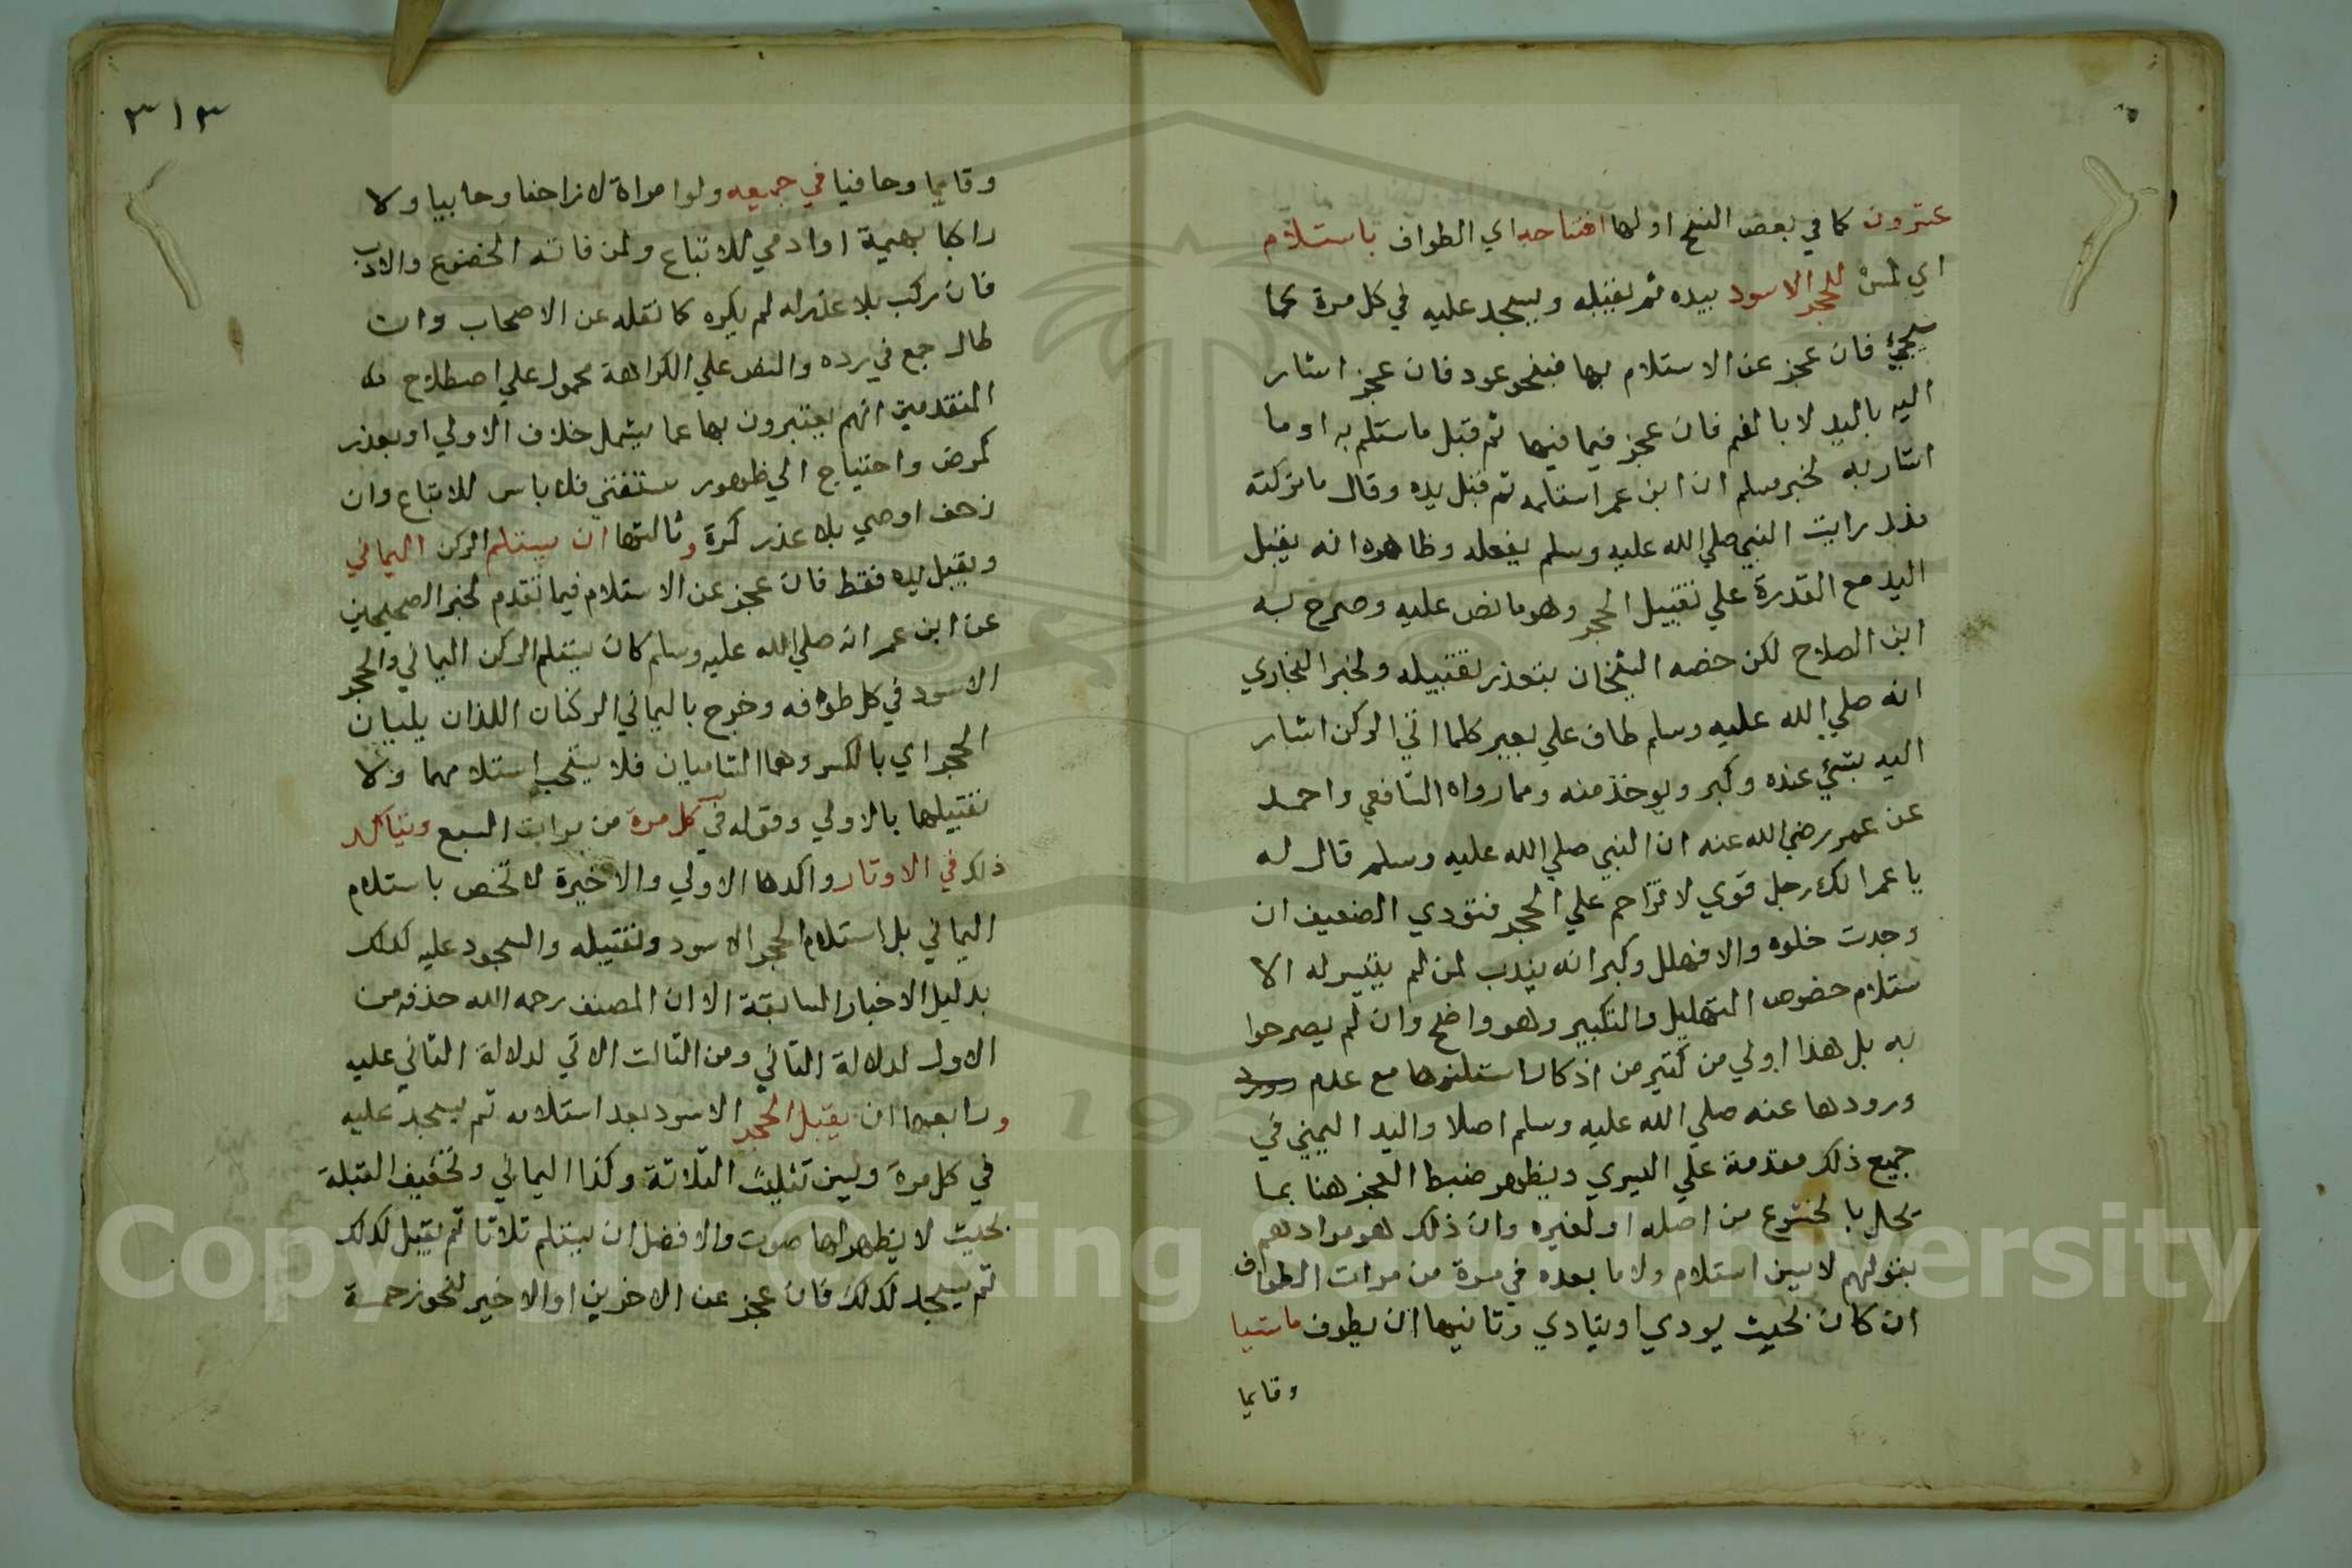 عشرون كما في بعض النسخ اولها افتتاحه اي الطواف باستلام
اي لمس للحجر الاسود بيده ثم يقبله ويسجد عليه في كل مرة كما
سيجيئ فان عجز عن الاستلام بها فبنحو عود فان عجز اشار
اليه باليد لا بالفم فان عجز فيما فيها ثم قبل ما استلم به او ما
اشار به لخبر مسلم ان ابن عمر استلمه ثم قبل يده وقال ما تركته
منذ رايت النبي صلي الله عليه وسلم يفعله وظاهره انه يقبل
اليد مع القدرة علي تقبيل الحجر وهو ما نص عليه وصرح به
ابن الصلاح لكن خصه الشيخان بتعذر تقبيله ولخبر البخاري
انه صلي الله عليه وسلم طاف علي بعير كلما اتي الركن اشار
اليه بشئ عنده وكبر ويوخذ منه ومما رواه الشافعي واحمد
عن عمر رضي الله عنه ان النبي صلي الله عليه وسلم قال له
يا عمر انك رجل قوي لا تزاحم علي الحجر فتؤدي الضعيف ان
وجدت خلوه والا فهلل وكبر انه يندب لمن لم يتيسر له الا
ستلام خصوص التهليل والتكبير وهو واضح وان لم يصرحوا
به بل هذا اولي من كثير من اذكار استلنوها مع عدم
ورودها عنه صلي الله عليه وسلم اصلا واليد اليمني في
جميع ذلك مقدمة علي اليسري ويظهر ضبط العجز هنا بما
يخل بالخشوع من اصله او لغيره وان ذلك هو مرادهم
بقولهم لا يسن استلام ولا ما بعده في مرة من مرات الطواف
ان كان بحيث يودي او يتادي وثانيها ان يطوف ماشيا
وقايما
٣١٣
وقايما وحافيا في جميعه ولو امراة لا زاحفا وحابيا ولا
راكبا بهيمة او ادمي للاتباع ولمن فاته الخضوع والادب
فان ركب بلا عذر له لم يكره كما نقله عن الاصحاب وان
طال جمع في رده والنص علي الكراهة محمول علي اصطلاح
المتقدمين انهم يعتبرون بها عما يشمل خلاف الاولي او بعذر
كمرض واحتياج الي ظهور ستفتي فلا باس للاتباع وان
زحف او حبي بلا عذر كره وثالثها ان يستلم الركن اليماني
ويقبل يده فقط فان عجز عن الاستلام فيما تقدم لخبر الصحيحين
عن ابن عمر انه صلي الله عليه وسلم كان يستلم الركن اليماني والحجر
الاسود في كل طوافه وخرج باليماني الركنان اللذان يليان
الحجر اي بالكسر وهما الشاميان فلا يستحب استلامهما ولا
تقبيلهما بالاولي وقوله في كل مرة من مرات السبع ويتاكد
ذلك في الاوتار واكدها الاولي والاخيرة لا تختص باستلام
اليماني بل استلام الحجر الاسود وتقبيله والسجود عليه كذلك
بدليل الاخبار السابقة الا ان المصنف رحمه الله حذفه من
الاول لدلالة الثاني ومن الثالث الاتي لدلالة الثاني عليه
ورابعها ان يقبل الحجر الاسود بعد استلامه ثم يسجد عليه
في كل مرة ويسن تثليث الثلاثة وكذا اليماني وتخفيف القبلة
بحيث لا يظهر لها صوت والافضل ان يستلم ثلاثا ثم يقبل كذلك
ثم يسجد كذلك فان عجز عن الاخرين او الاخير لنحو زحمة